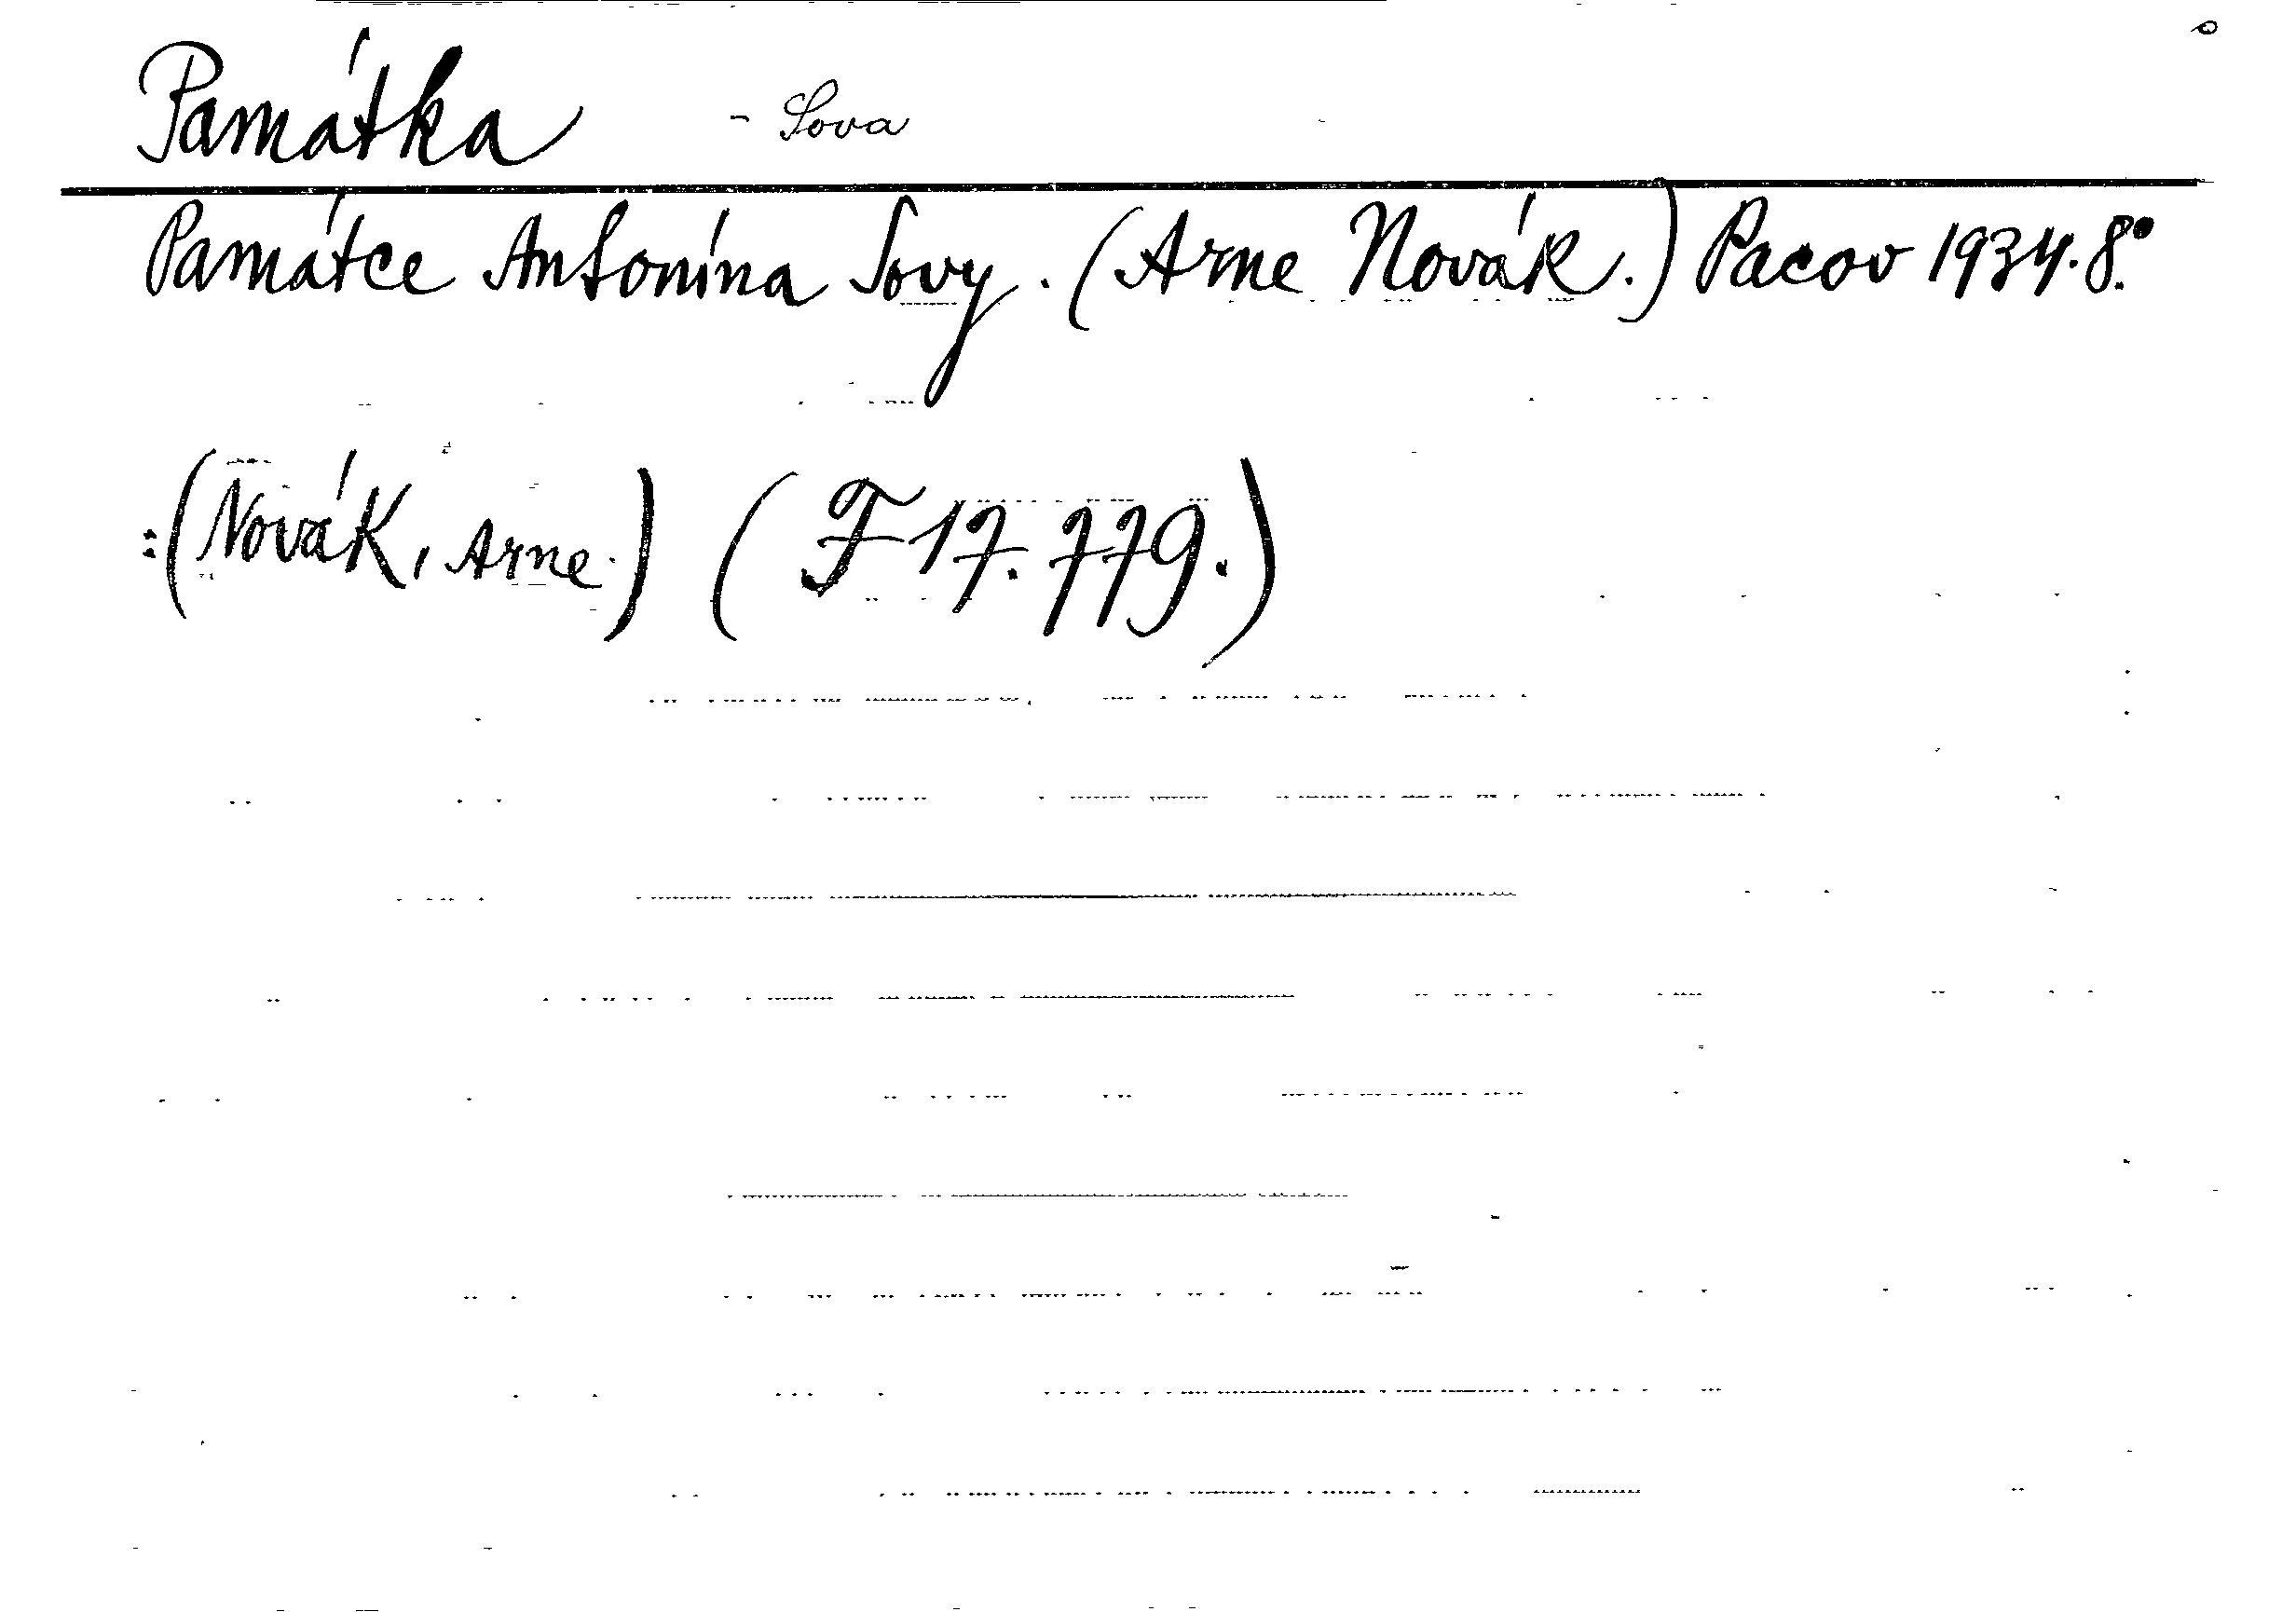 Památka - Sova
Památce Antonína Sovy. (Arne Novák.) Pacov 1934. 8°.
:(Novák, Arne.) (F 17.779.)